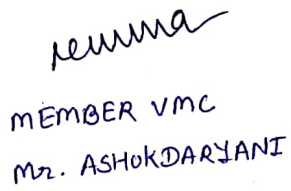 MEMBER VMC
Mr. ASHOKDARYANI